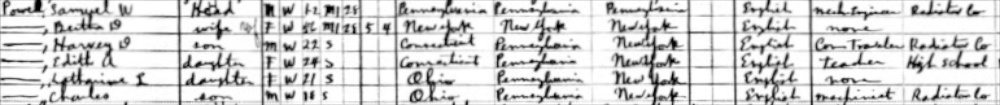 Powel, Samuel W Head M W 52 M1 28 Pennsylvania Pennsylvania Pennsylvania English Mech Engineer Radiator Co
—, Bertha D wife F W 56 M1 28 5 4 New York New York New York English none
—, Harvey D son M W 22 S Connecticut Pennsylvania New York English Com Traveler Radiator Co
—, Edith A daughter F W 24 S Connecticut Pennsylvania New York English Teacher High School
—, Katharine E daughter F W 21 S Ohio Pennsylvania New York English none
—, Charles son M W 18 S Ohio Pennsylvania New York English machinist Radiator Co